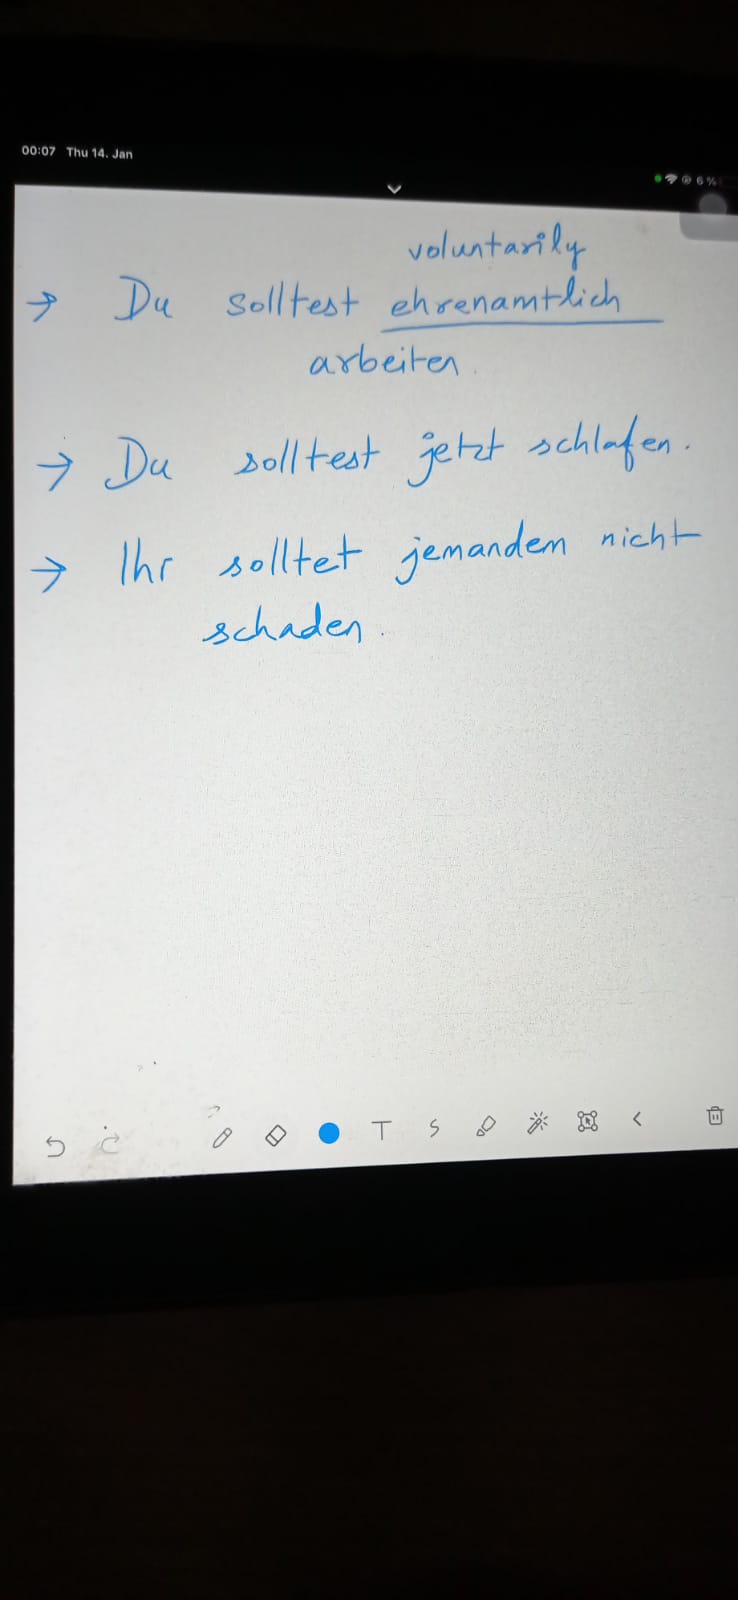 00:07 Thu 14. Jan
6%
voluntarily
→ Du solltest ehrenamtlich
arbeiten.
→ Du solltest jetzt schlafen.
→ Ihr solltet jemandem nicht
schaden.
T